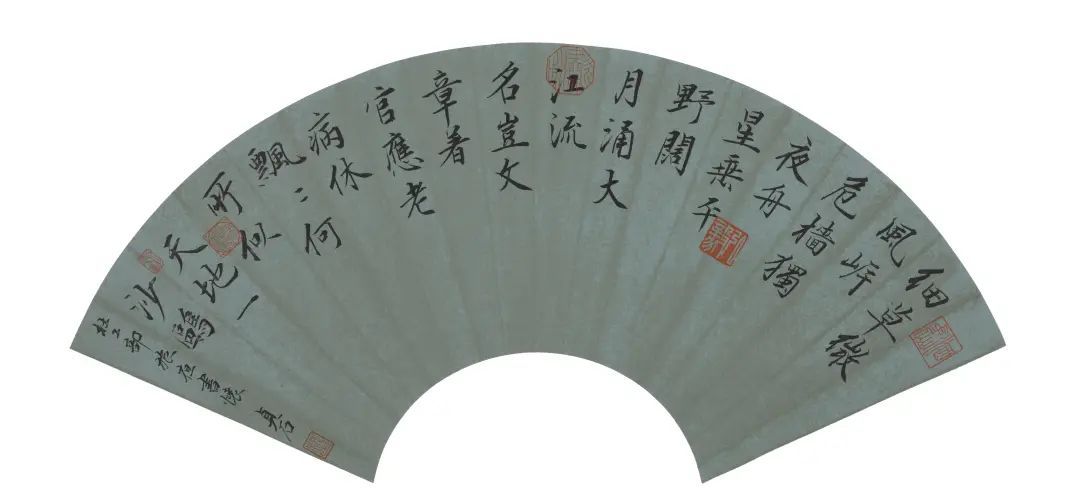 細草微
風岸
危檣獨
夜舟
星垂平
野闊
月涌大
江流
名豈文
章着
官應老
病休
飄〻何
所似
天地一
沙鷗
杜工部旅夜書懷